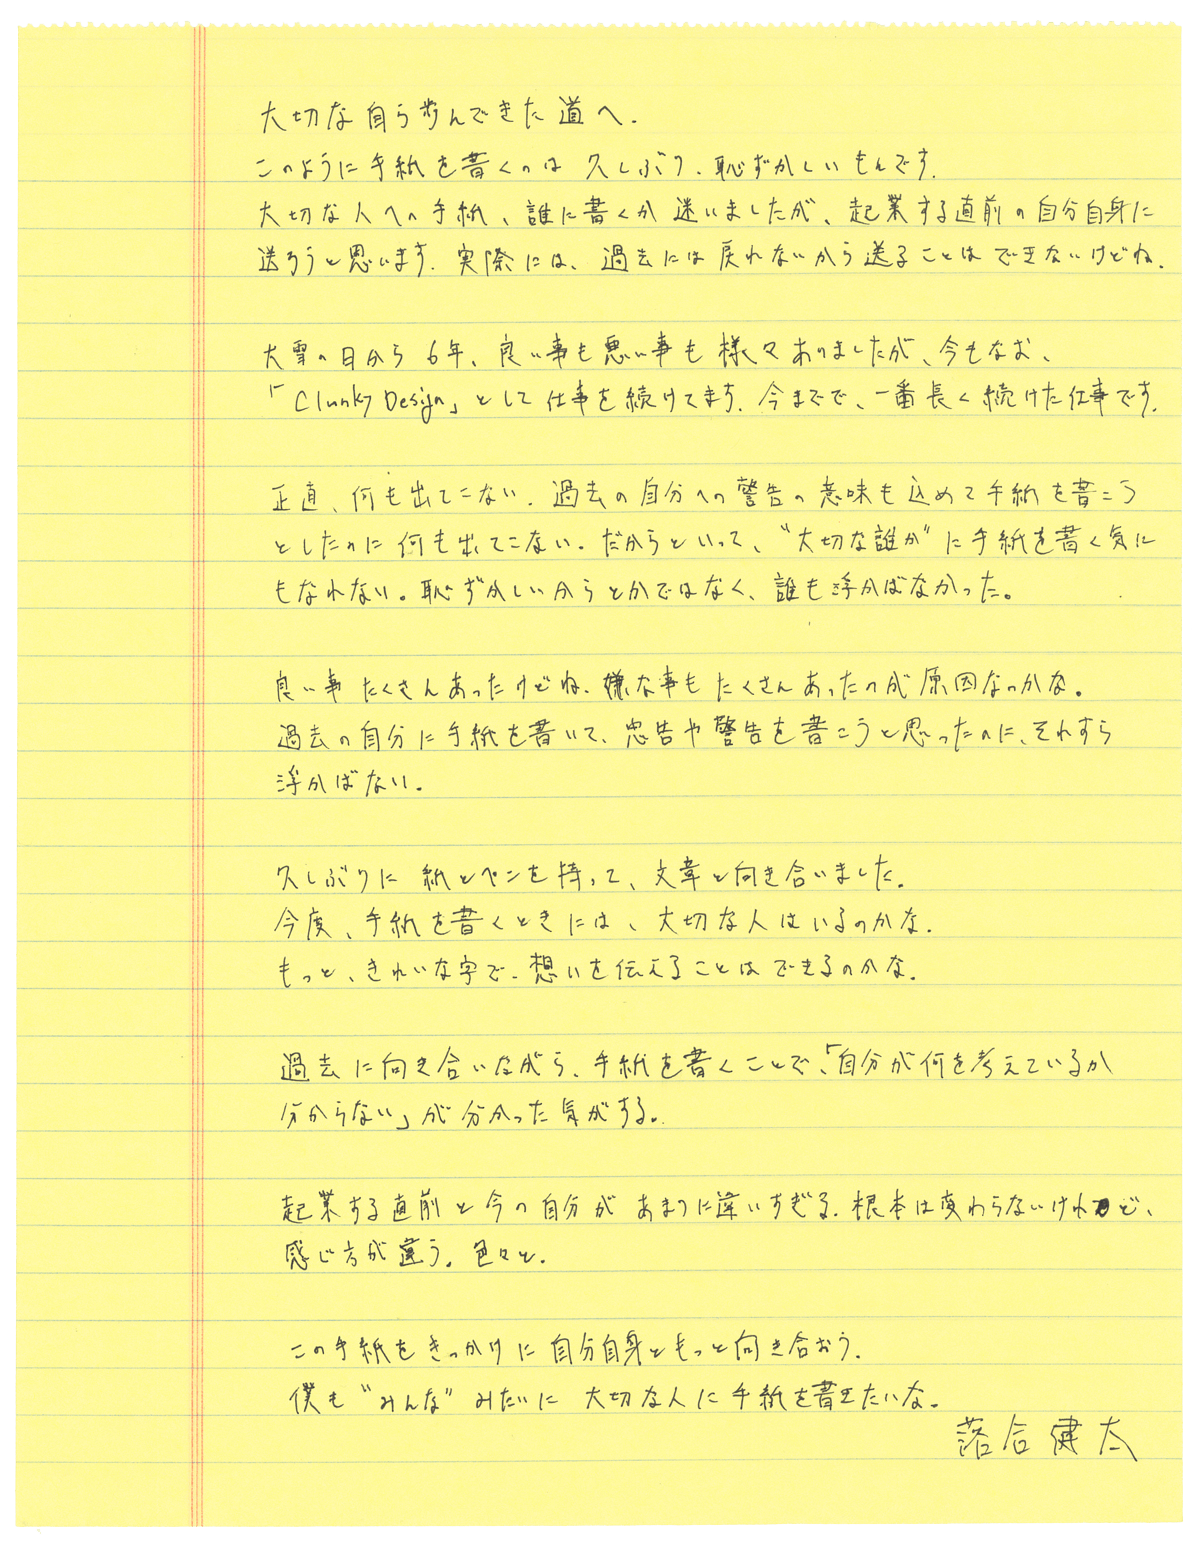 大切な自ら歩んできた道へ.
このように手紙を書くのは 久しぶり、恥ずかしいもんです.
大切な人への手紙、誰に書くか 迷いましたが、起業する直前の自分自身に
送ろうと思います. 実際には、過去には戻れないから送ることは できないけどね.
大雪の日から 6年、良い事も悪い事も 様々ありましたが、今もなお、
「Clunky Design」として仕事を続けてます. 今までで、一番長く続けた仕事です.
正直、何も出てこない. 過去の自分への警告の意味も込めて手紙を書こう
としたのに何も出てこない。だからといって、“大切な誰か”に手紙を書く気に
もなれない。恥ずかしいからとかではなく、誰も浮かばなかった。
良い事たくさんあったけどね、嫌な事もたくさんあったのが原因なのかな。
過去の自分に手紙を書いて、忠告や警告を書こうと思ったのに、それすら
浮かばない.
久しぶりに 紙とペンを持って、文章と向き合いました.
今度、手紙を書くときには、大切な人はいるのかな.
もっと、きれいな字で、想いを伝えることはできるのかな.
過去に向き合いながら、手紙を書くことで、「自分が何を考えているか
分からない」が分かった気がする.
起業する直前と今の自分が あまりに違いすぎる. 根本は変わらないけれど、
感じ方が違う。色々と.
この手紙をきっかけに自分自身ともっと向き合おう.
僕も“みんな”みたいに 大切な人に手紙を書きたいな。
落合健太